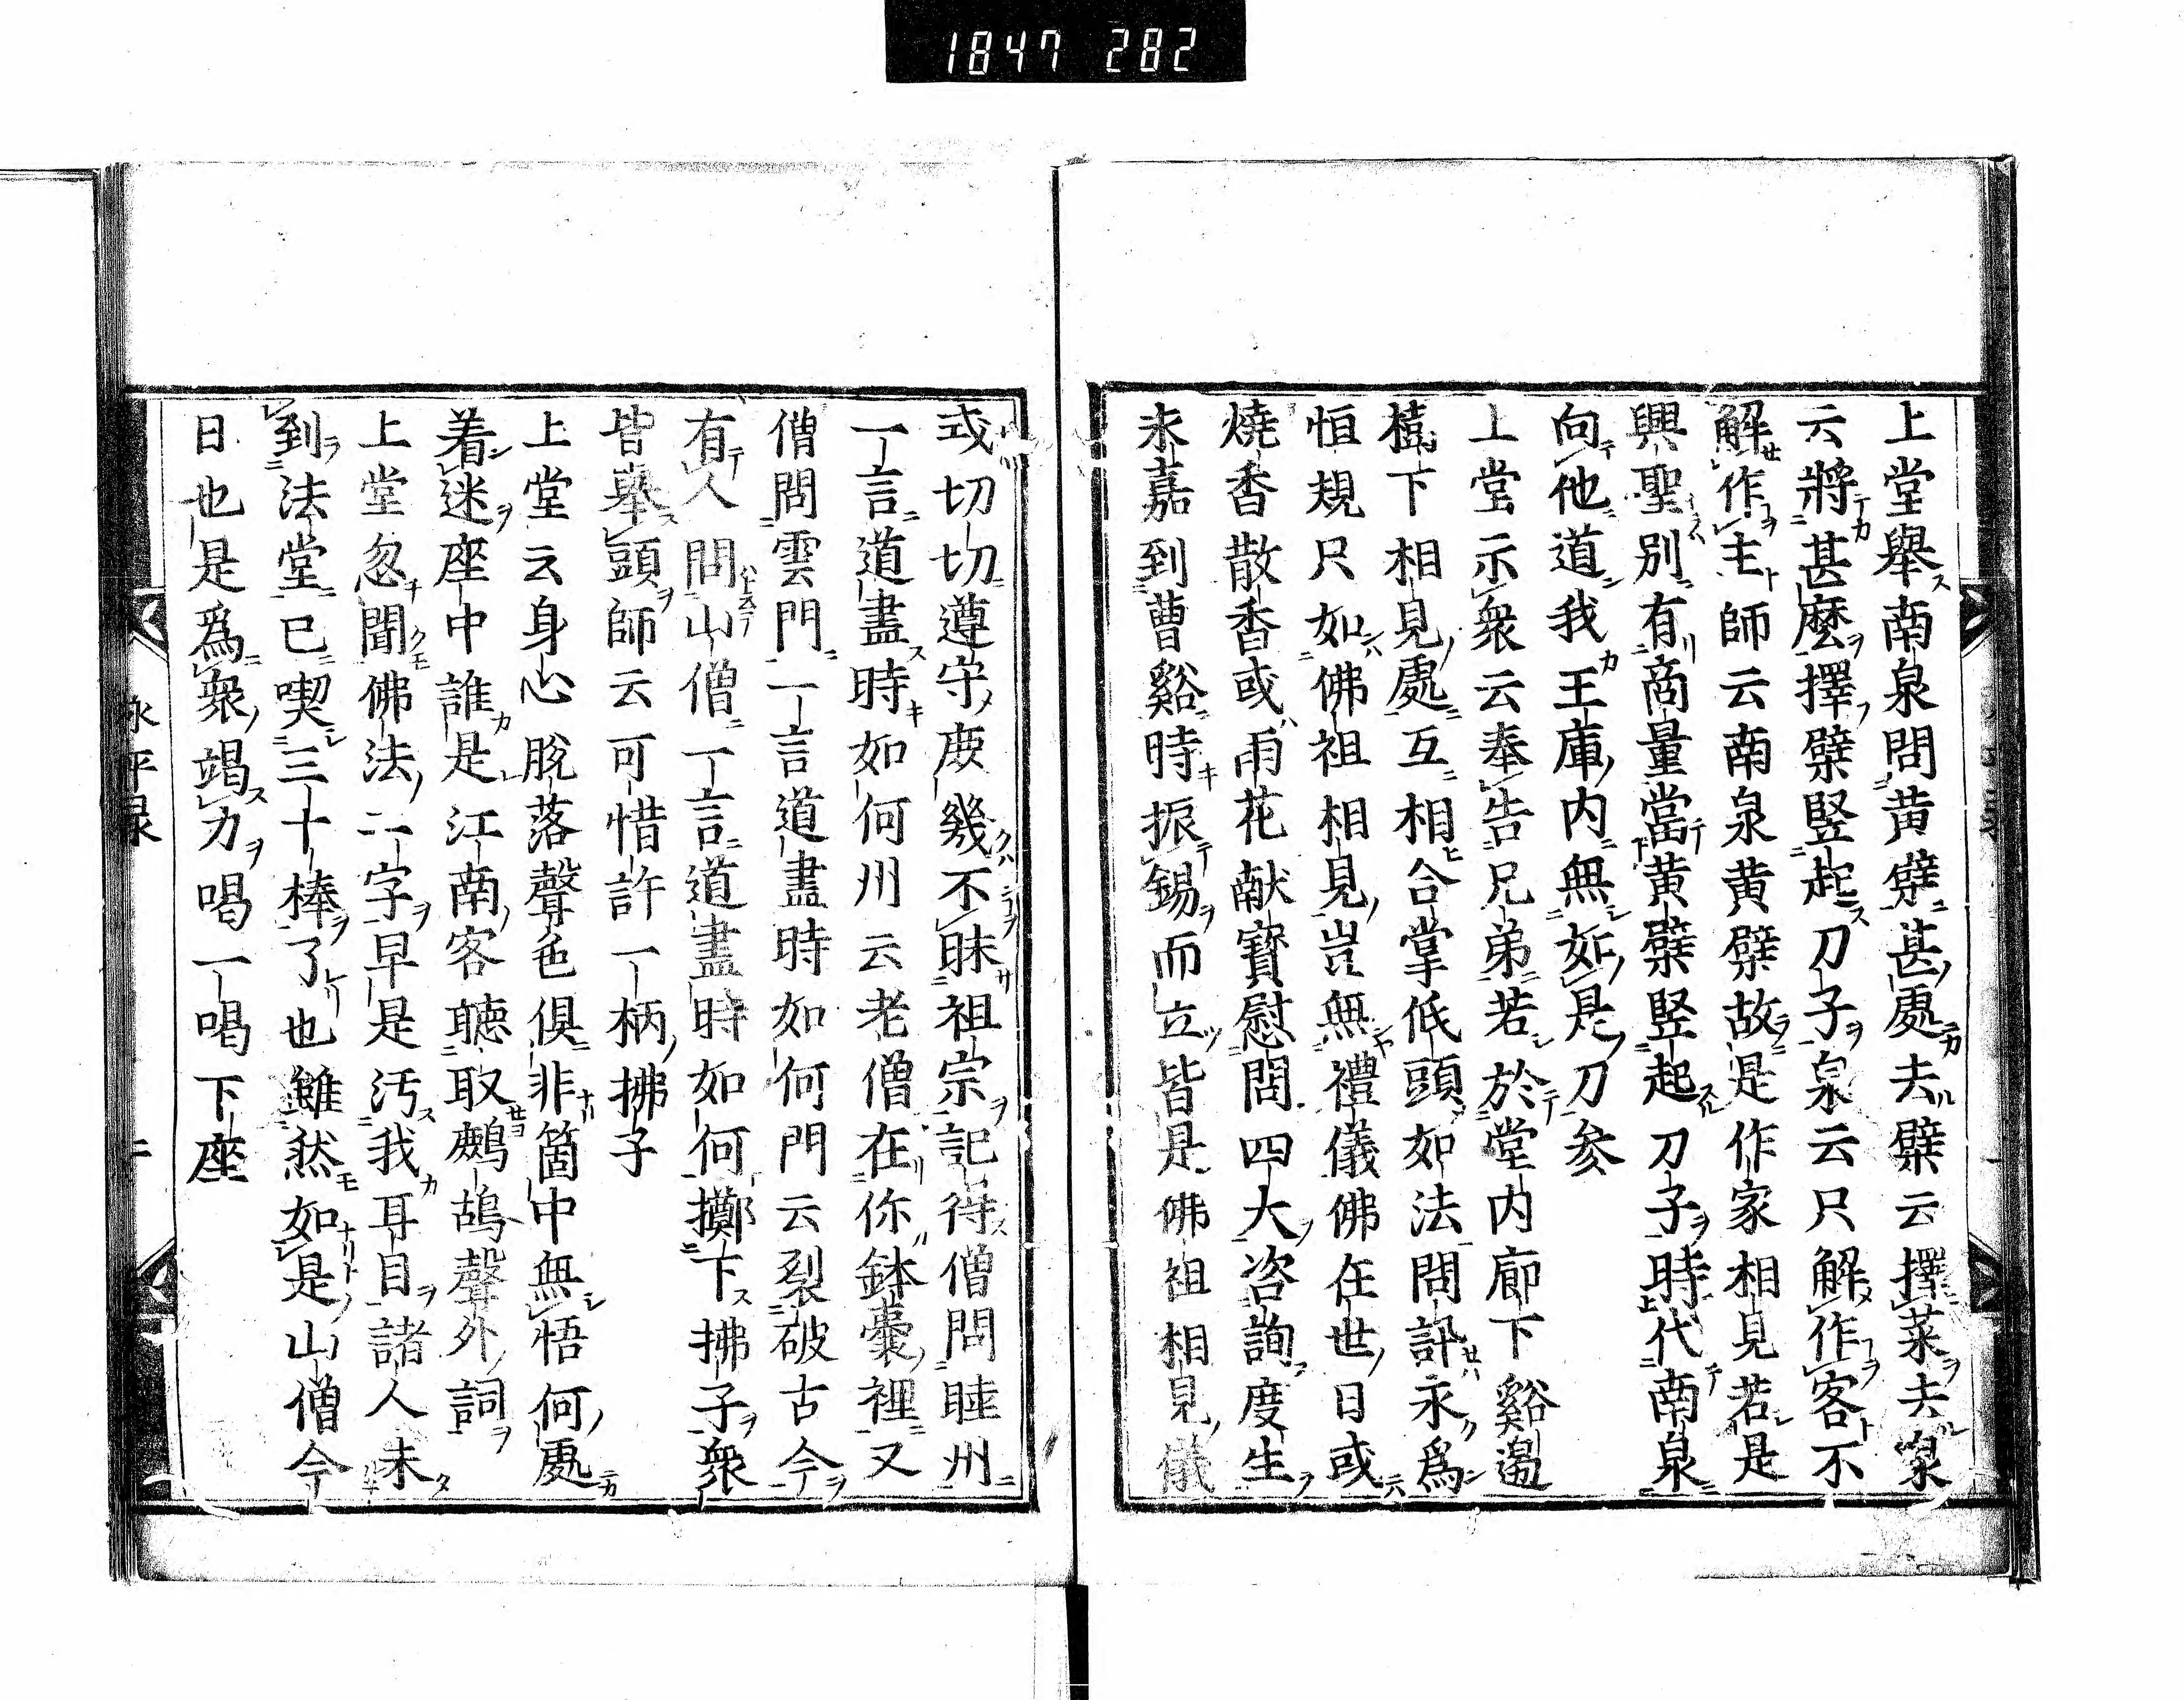 1847 282
上堂舉南泉問黄蘗甚處去蘗云擇菜去泉
云將甚麼擇蘗竪起刀子泉云只解作客不
解作主師云南泉黄蘗故是作家相見若是
興聖別有商量當黄蘗竪起刀子時代南泉
向他道我王庫内無如是刀参
上堂示衆云奉告兄弟若於堂内廊下谿邊
樹下相見處互相合掌低頭如法問訊永爲
恒規只如佛祖相見豈無禮儀佛在世日或
燒香散香或雨花献寳慰問四大咨詢度生
永嘉到曹谿時振錫而立皆是佛祖相見儀
式切切遵守庶幾不昧祖宗記得僧問睦州
一言道盡時如何州云老僧在你鉢囊裡又
僧問雲門一言道盡時如何門云裂破古今
有人問山僧一言道盡時如何擲下拂子衆
皆舉頭師云可惜許一柄拂子
上堂云身心脱落聲色倶非箇中無悟何處
着迷座中誰是江南客聴取鷓鴣聲外詞
上堂忽聞佛法二字早是汚我耳目諸人未
到法堂已喫三十棒了也雖然如是山僧今
日也是爲衆竭力喝一喝下座
永平録